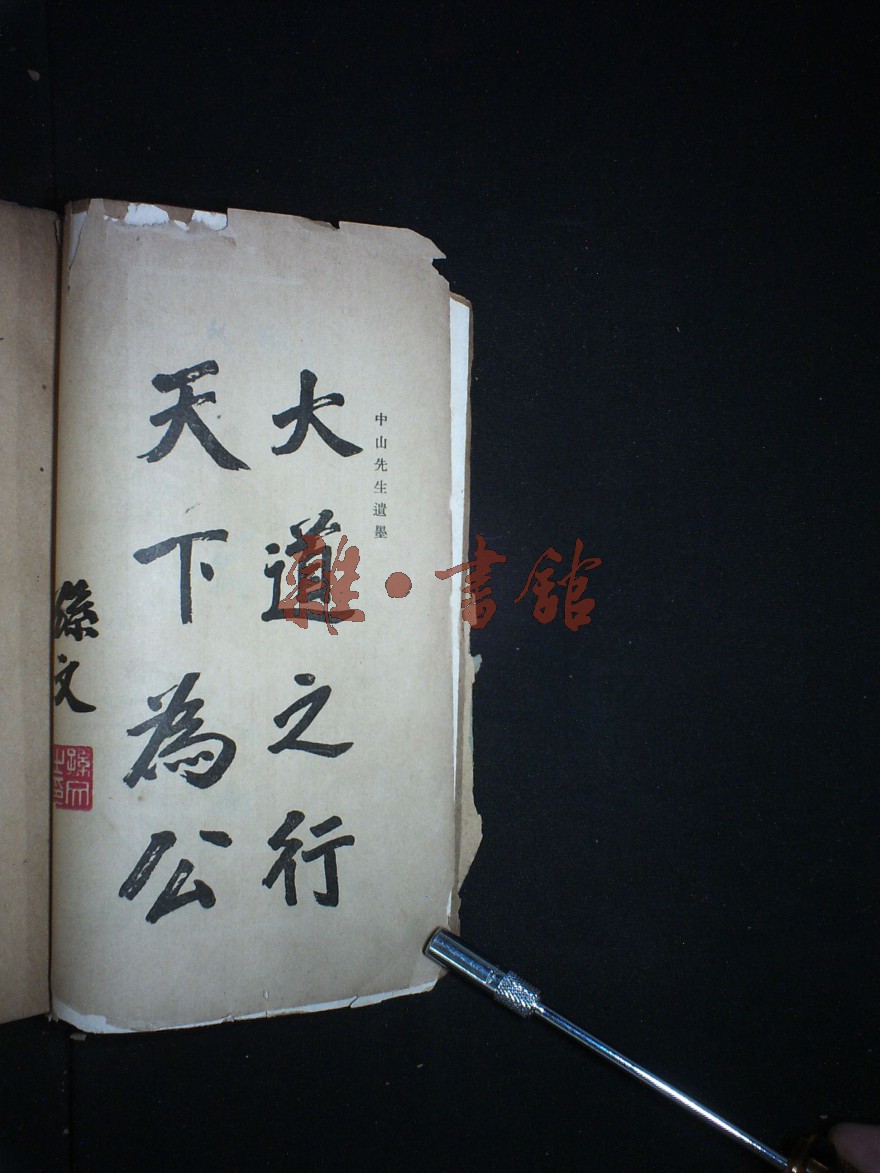 中山先生遺墨
大道之行
天下為公
孫文
孫文之印
雜·書館